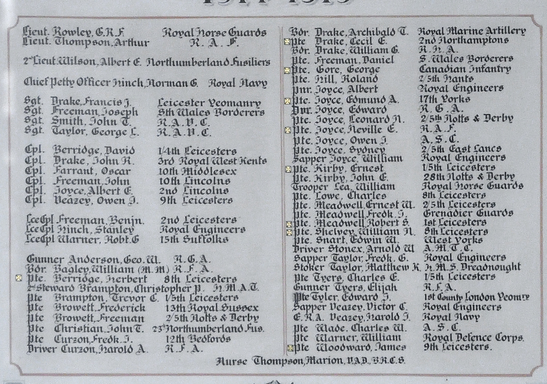 1914-1919
Lieut. Rowley, G.R.F. Royal Horse Guards
Lieut. Thompson, Arthur R. A. F.
2nd Lieut Wilson, Albert E. Northumberland Fusiliers
Chief Petty Officer Finch, Norman G. Royal Navy
Sgt. Drake, Francis J. Leicester Yeomanry
Sgt. Freeman, Joseph Sth Wales Borderers
Sgt. Smith, John T. R.A.V.C.
Sgt. Taylor, George L. R.A.V.C.
Cpl. Berridge, David 1/4th Leicesters
Cpl. Drake, John R. 3rd Royal West Kents
Cpl. Farrant, Oscar 10th Middlesex
Cpl. Freeman, John 10th Lincolns
Cpl. Joyce, Albert E. 2nd Lincolns
Cpl. Veazey, Owen J. 9th Leicesters
LceCpl Freeman, Benjn. 2nd Leicesters
LceCpl Finch, Stanley Royal Engineers
LceCpl Warner, Robt. G 15th Suffolks
Gunner Anderson, Geo. W. R.G.A.
Bdr. Bagley, William (M.M) R.F.A.
Pte. Berridge, Herbert 8th Leicesters
Steward Brampton, Christopher J. H.M.A.T.
Pte Brampton, Trevor C. 1/5th Leicesters
Pte Browett, Frederick 13th Royal Sussex
Pte Browett, Freeman 2/5th Notts & Derby
Pte Christian, John T. 23rd Northumberland Fus.
Pte Curzon, Fredk. J. 12th Bedfords
Driver Curzon, Harold A. R.F.A.
Bdr. Drake, Archibald T. Royal Marine Artillery
Pte Drake, Cecil E. 2nd Northamptons
Bdr. Drake, William G. R.H.A.
Pte. Freeman, Daniel S. Wales Borderers
Pte. Gore, George Canadian Infantry
Pte. Hill, Roland 2/5th Hants
Pnr. Joyce, Albert Royal Engineers
Pte. Joyce, Edmund A. 17th Yorks
Dvr. Joyce, Edward R.G.A.
Pte. Joyce, Leonard N. 2/5th Notts & Derby
Pte. Joyce, Neville E. R.A.F.
Pte. Joyce, Owen J. A.S.C.
Pte. Joyce, Sydney 2/5th East Lancs
Sapper Joyce, William Royal Engineers
Pte. Kirby, Ernest 1/5th Leicesters
Pte. Kirby, John E. 28th Notts & Derby
Trooper Lea, William Royal Horse Guards
Pte. Lowe, Charles 8th Leicesters
Pte. Meadwell Ernest W. 2/5th Leicesters
Pte. Meadwell Fredk. J. Grenadier Guards
Pte. Meadwell Robert S. 1st Leicesters
Pte. Shelvey, William N. 8th Leicesters
Pte. Snart, Edwin W. West Yorks
Driver Stonex, Arnold W A.M.T.C.
Sapper Taylor, Fredk. G. Royal Engineers
Stoker Taylor, Matthew R. H.M.S. Dreadnought
Pte Tyers, Charles E. 1/5th Leicesters
Gunner Tyers, Elijah R.F.A.
Pte Tyler, Edward J. 1st County London Yeomy
Sapper Veazey, Victor C. Royal Engineers
E.R.A. Veazey, Harold J. Royal Navy
Pte Wade, Charles W. A.S.C.
Pte Warner, William Royal Defence Corps.
Pte Woodward, James 9th Leicesters.
Nurse Thompson, Marion, V.A.D. B.R.C.S.